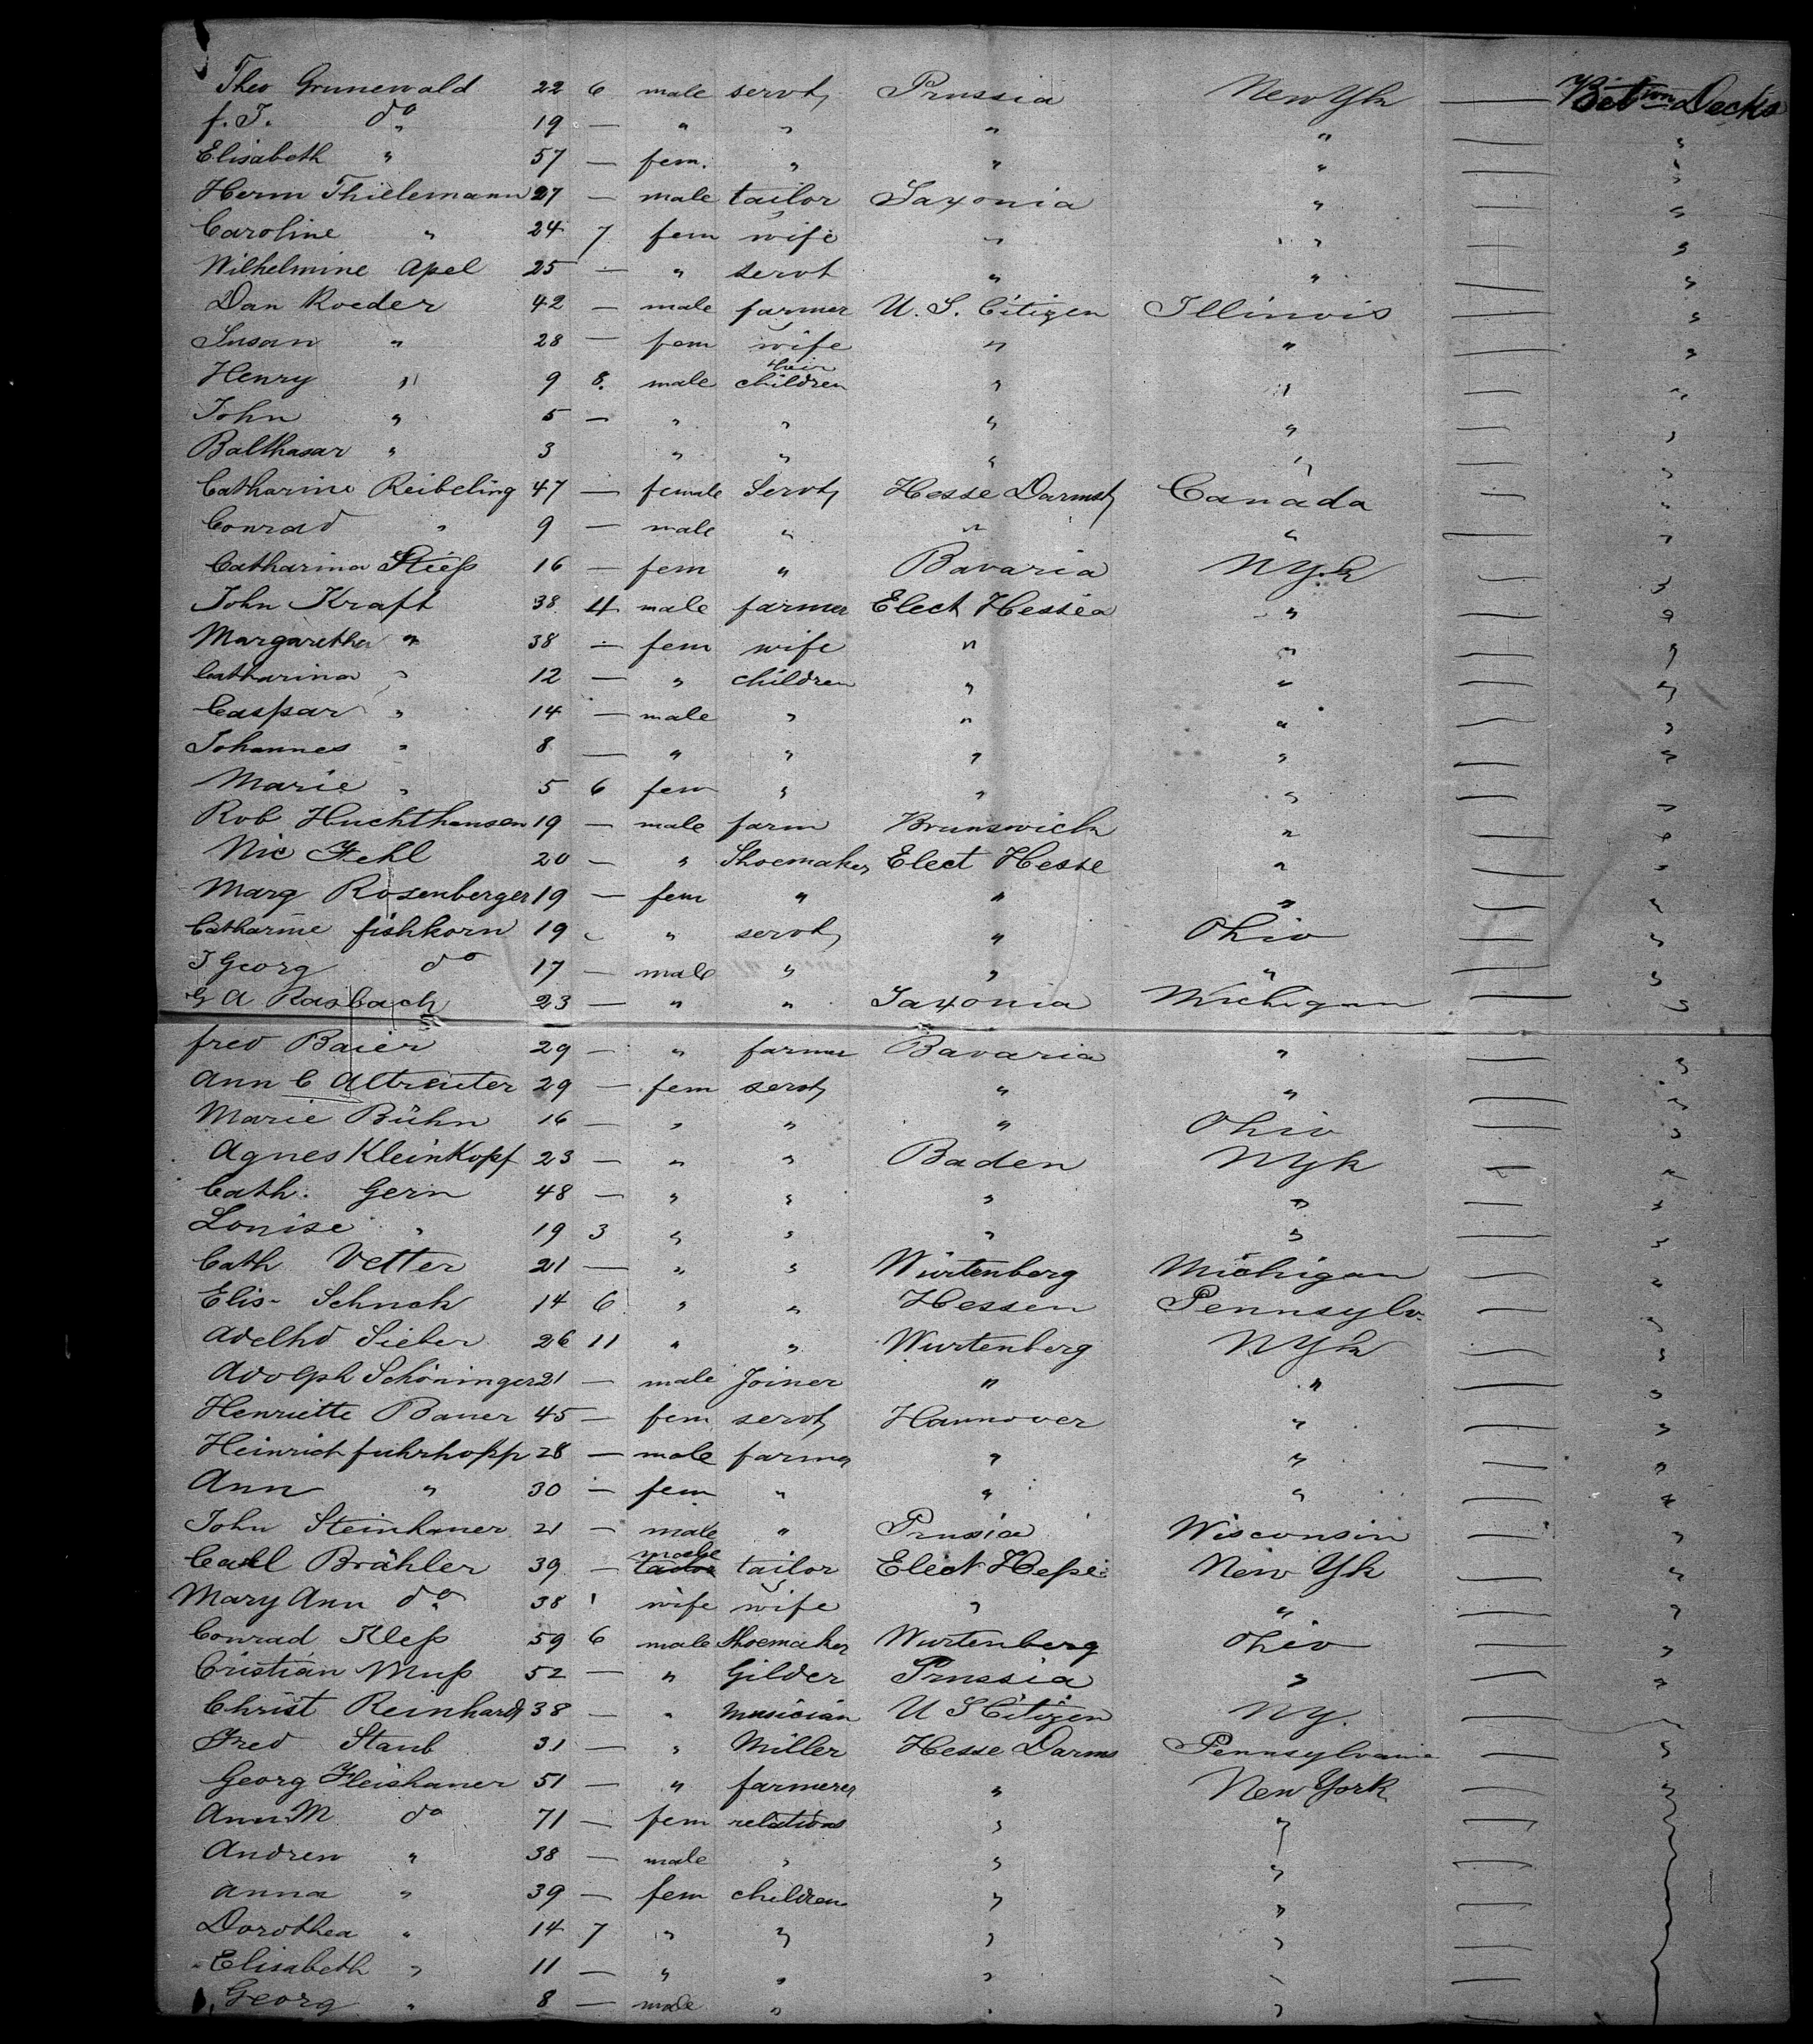 Theo Grunewald 22 6 male servt, Prussia New Yk — Betwn Decks
f. J. do 19 — " " " " — "
Elisabeth " 57 — fem. " " " — "
Herm Thielemann 27 — male tailor Saxonia " — "
Caroline " 24 7 fem wife " " — "
Wilhelmine Apel 25 — " servt " " — "
Dan Roeder 42 — male farmer U. S. Citizen Illinois — "
Susan " 28 — fem wife " " — "
Henry " 9 8. male their children " " — "
John " 5 — " " " " — "
Balthasar " 3 " " " " — "
Catharine Reibeling 47 — female Servt, Hesse Darmst, Canada — "
Conrad " 9 — male " " " — "
Catharina Stieß 16 — fem " Bavaria NYk — "
John Kraft 38 4 male farmer Elect Hessia " — "
Margaretha " 38 — fem wife " " — "
Catharina " 12 — " children " " — "
Caspar " 14 — male " " " — "
Johannes " 8 — " " " " — "
Marie " 5 6 fem " " " — "
Rob Huchthausen 19 — male farm Brunswich " — "
Nic Fehl 20 — " Shoemaker Elect Hesse " — "
Marg Rosenberger 19 — fem " " " — "
Catharine fishkorn 19 — " servt, " Ohio — "
J Georg do 17 — male " " " — "
G A Rasbach 23 — " " Saxonia Michigan — "
fred Baier 29 — " farmer Bavaria " — "
Ann C Altreuter 29 — fem servt, " " — "
Marie Bühn 16 — " " " Ohio — "
Agnes Kleinkopf 23 — " " Baden NYk — "
Cath. Gern 48 — " " " " — "
Louise " 19 3 " " " " — "
Cath Vetter 21 — " " Würtenberg Michigan — "
Elis- Schuck 14 6 " " Hessen Pennsylv. — "
Adelhd Sieber 26 11 " " Wurtenberg NYk — "
Adolph Schöninger 21 — male Joiner " " — "
Henriette Bauer 45 — fem servt, Hannover " — "
Heinrich fuhrhopp 28 — male farmer " " — "
Ann " 30 — fem " " " — "
John Steinhauer 21 — male " Prussia Wisconsin — "
Carl Brähler 39 — male tailor Elect Heße New Yk — "
Mary Ann do 38 1 wife wife " " — "
Conrad Kleß 59 6 male Shoemaker Wurtenberg Ohio — "
Cristian Muß 52 — " Gilder Prussia " — "
Christ Reinhardt 38 — " Musician U S Citizen NY. — "
Fred Staub 31 — " Miller Hesse Darms Pennsylvania — "
Georg Fleishauer 51 — " farmerer " New York — "
Ann M do 71 — fem relations " " — "
Andrew " 38 — male " " " —
Anna " 39 — fem children " " —
Dorothea " 14 7 " " " " —
Elisabeth " 11 — " " " " —
Georg " 8 — male " " " —